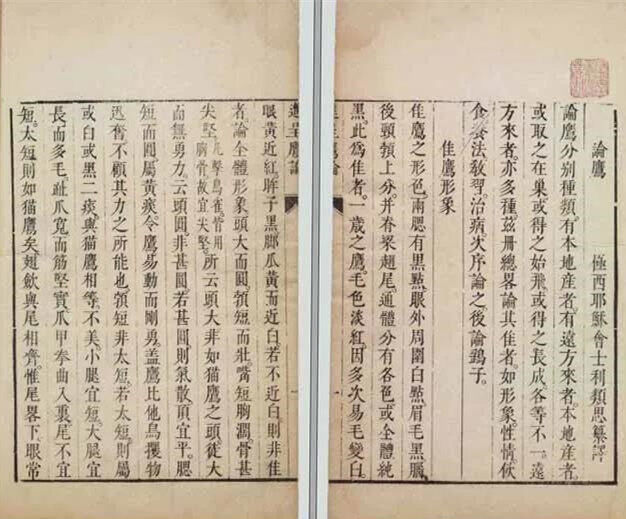 論鷹
極西耶穌會士利類思纂譯
論鷹分別種類有本地產者有遠方來者本地產者
或取之在巢或得之始飛或得之長成各等不一遠
方來者亦多種茲冊總畧論其佳者如形象性情
食養法教習治病次序論之後論鷂子
佳鷹形象
佳鷹之形色兩腮有黑點眼外周圍白點眉毛黑臘
後頸頸上分并脊梁翅尾通體分有各色或全體純
黑此為佳者一歲之鷹毛色淡紅因多次易毛變白
進呈鷹論
一
眼黃近紅眸子黑脚瓜黃而近白若不近白則非佳
者論全體形象頭大而圓頷短而壯嘴短胸濶骨甚
尖堅凡擊鳥雀皆用胸骨故宜尖堅所云頭大非如猫鷹之頭徒大
而無勇力云頭圓非甚圓若甚圓則氣散頂宜平腮
短而圓屬黃痰令鷹易動而剛勇蓋鷹比他鳥攫物
迅奮不顧其力之所能也頷短非太短若太短則屬
或白或黑二痰與猫鷹相等不美小腿宜短大腿宜
長而多毛趾爪寬而筋堅實爪甲拳曲入裏尾不宜
短太短則如猫鷹矣翅歛與尾相齊惟尾畧下眼常